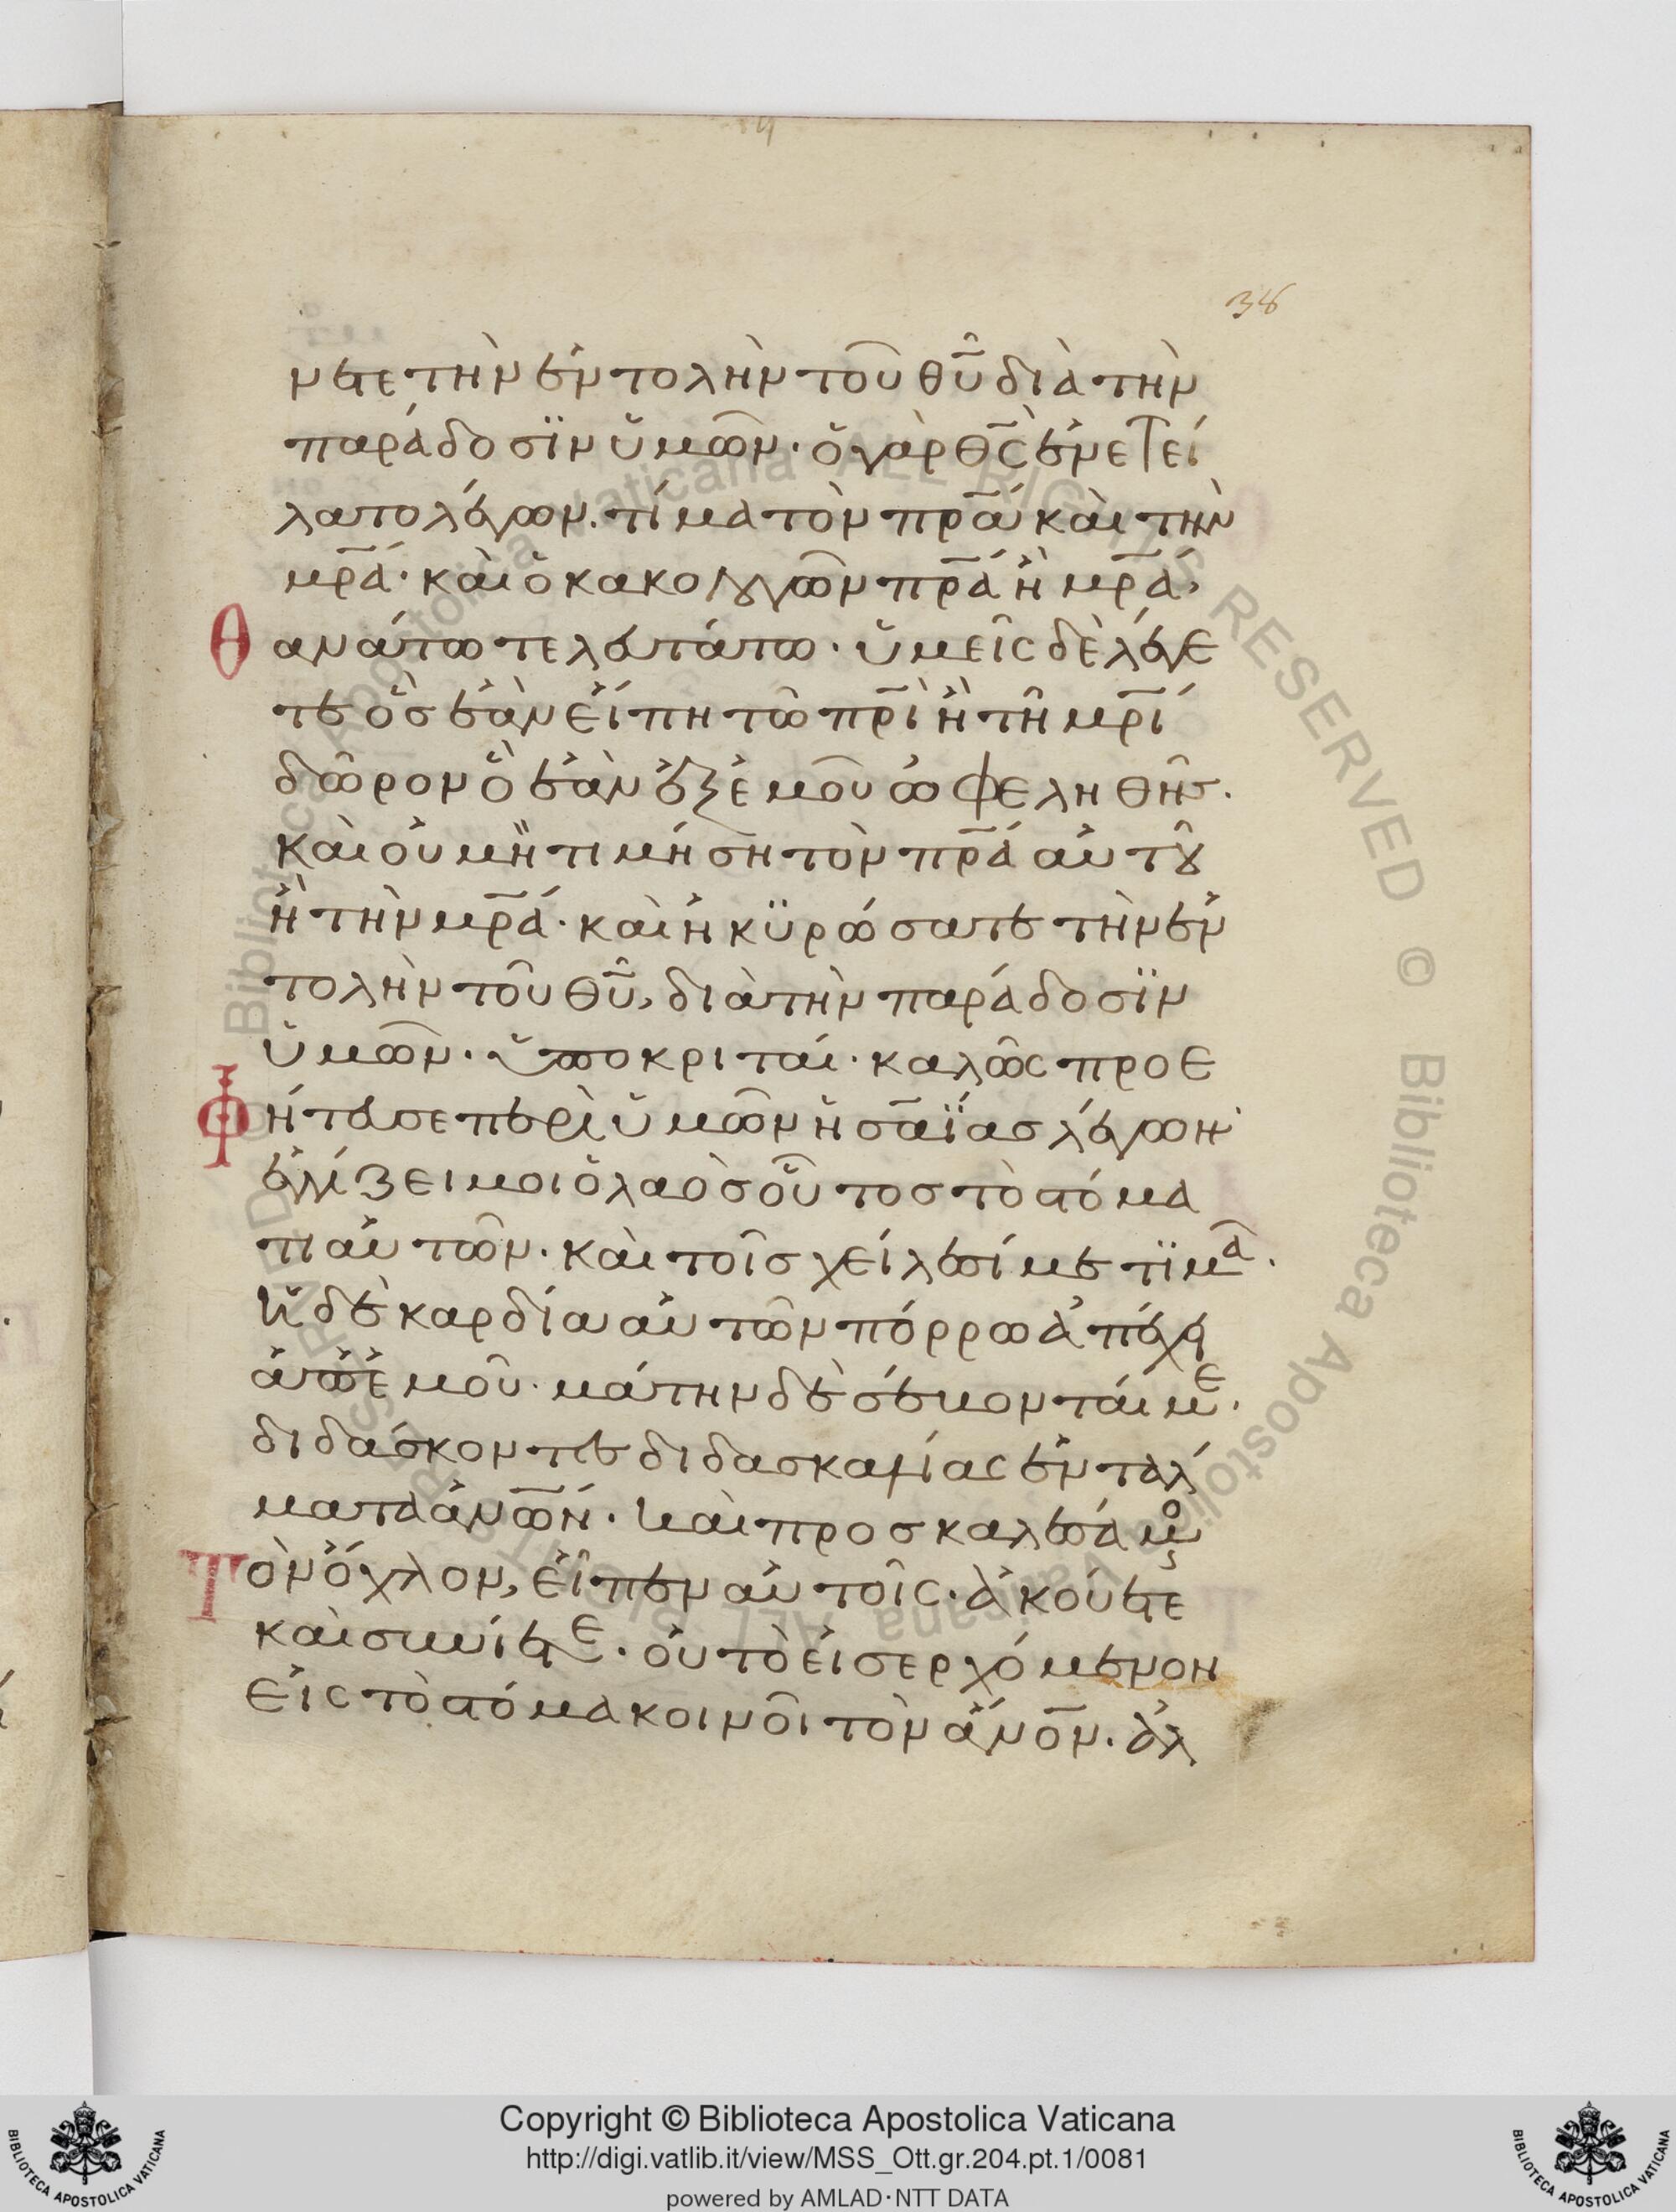 38
νετε τὴν ἐντολὴν τοῦ θ̅υ̅ διὰ τὴν
παράδοσϊν ὑμῶν· ὁ γὰρ θ̅ς̅ ἐνετεί
λατο λέγων. τίμα τὸν π̅ρ̅α̅ καὶ τὴν
μ̅ρ̅α̅· καὶ ὁ κακολογῶν π̅ρ̅α̅ ἢ μ̅ρ̅α̅,
θανάτω τελευτάτω· ὑμεῖς δὲ λέγε
τε ὃσ ἐὰν εἴπη τῶ π̅ρ̅ι̅ ἢ τῆ μ̅ρ̅ι̅
δῶρον ὃ ἐὰν ἐξ ἐμοῦ ὠφεληθῆσ.
καὶ οὐ μὴ τιμήση τὸν π̅ρ̅α̅ αὐτοῦ
ἢ τὴν μ̅ρ̅α̅· καὶ ἠκϋρώσατε τὴν ἐν
τολὴν τοῦ θ̅υ̅, διὰ τὴν παράδοσϊν
ὑμῶν· ὑποκριταί· καλῶς προε
φήτευσε περὶ ὑμῶν ἠσαΐασ λέγων·
ἐγγίζει μοι ὁ λαὸσ οὗτοσ τὸ στόμα
τι αὐτῶν· καὶ τοῖσ χείλεσί με τϊμᾶ.
ἡ δὲ καρδία αὐτῶν πόρρω ἀπέχει
ἀπ' ἐμοῦ· μάτην δὲ σέβονταί με.
διδάσκοντες διδασκαλίας ἐντάλ
ματα ἀ̅ν̅ω̅ν̅· καὶ προσκαλεσάμενος
τὸν ὄχλον, εἶπεν αὐτοῖς· ἀκούετε
καὶ συνίετε· οὐ τὸ εἰσερχόμενον
εἰς τὸ στόμα κοινοῖ τὸν ἄ̅ν̅ο̅ν̅. ἀλ
Copyright © Biblioteca Apostolica Vaticana
http://digi.vatlib.it/view/MSS_Ott.gr.204.pt.1/0081
powered by AMLAD·NTT DATA
BIBLIOTECA APOSTOLICA VATICANA
BIBLIOTECA APOSTOLICA VATICANA